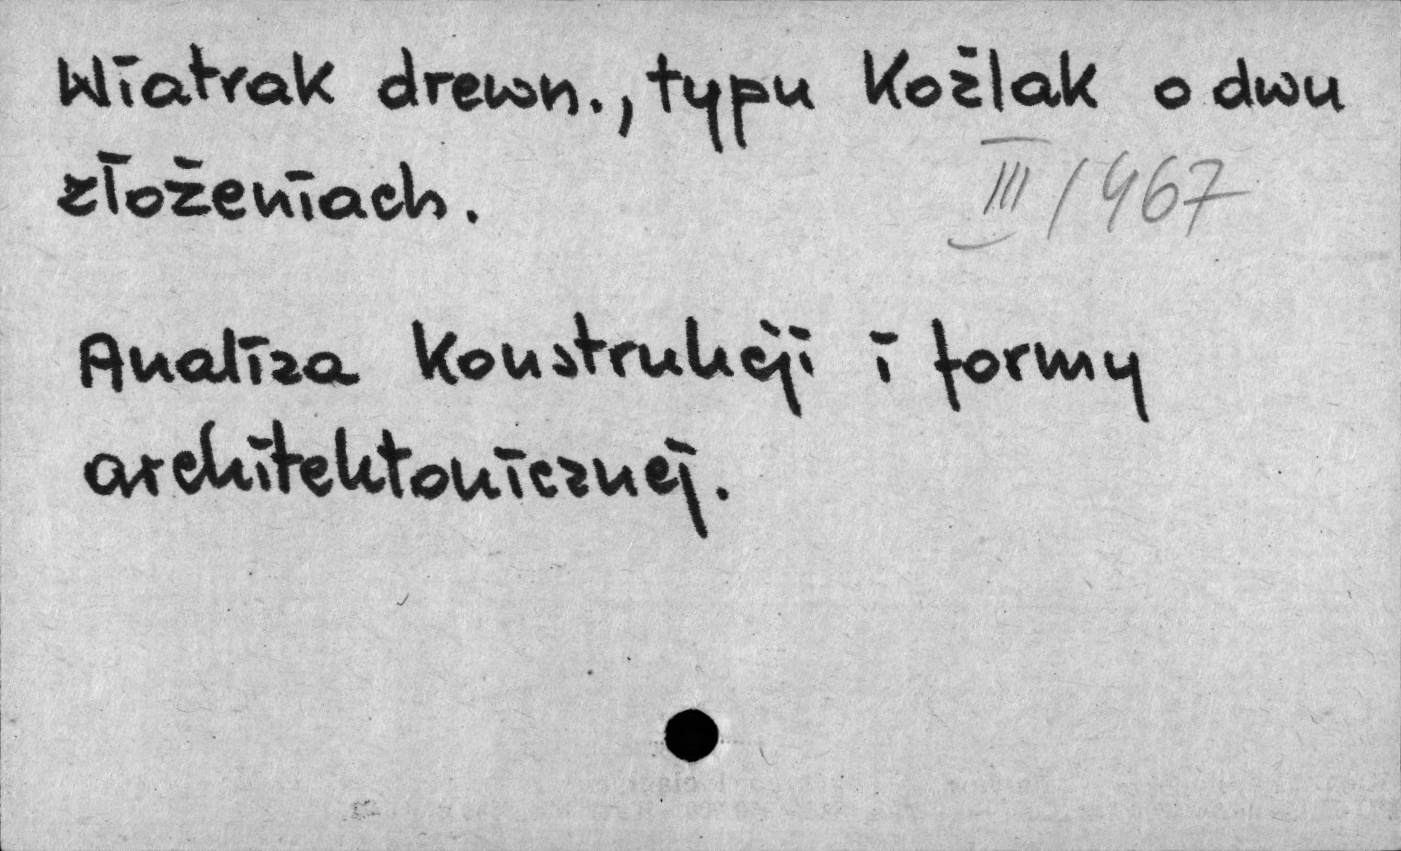 Wiatrak drewn., typu Koźlak o dwu
złożeniach.
III/467
Analiza Konstrukcji i formy
architektonicznej.